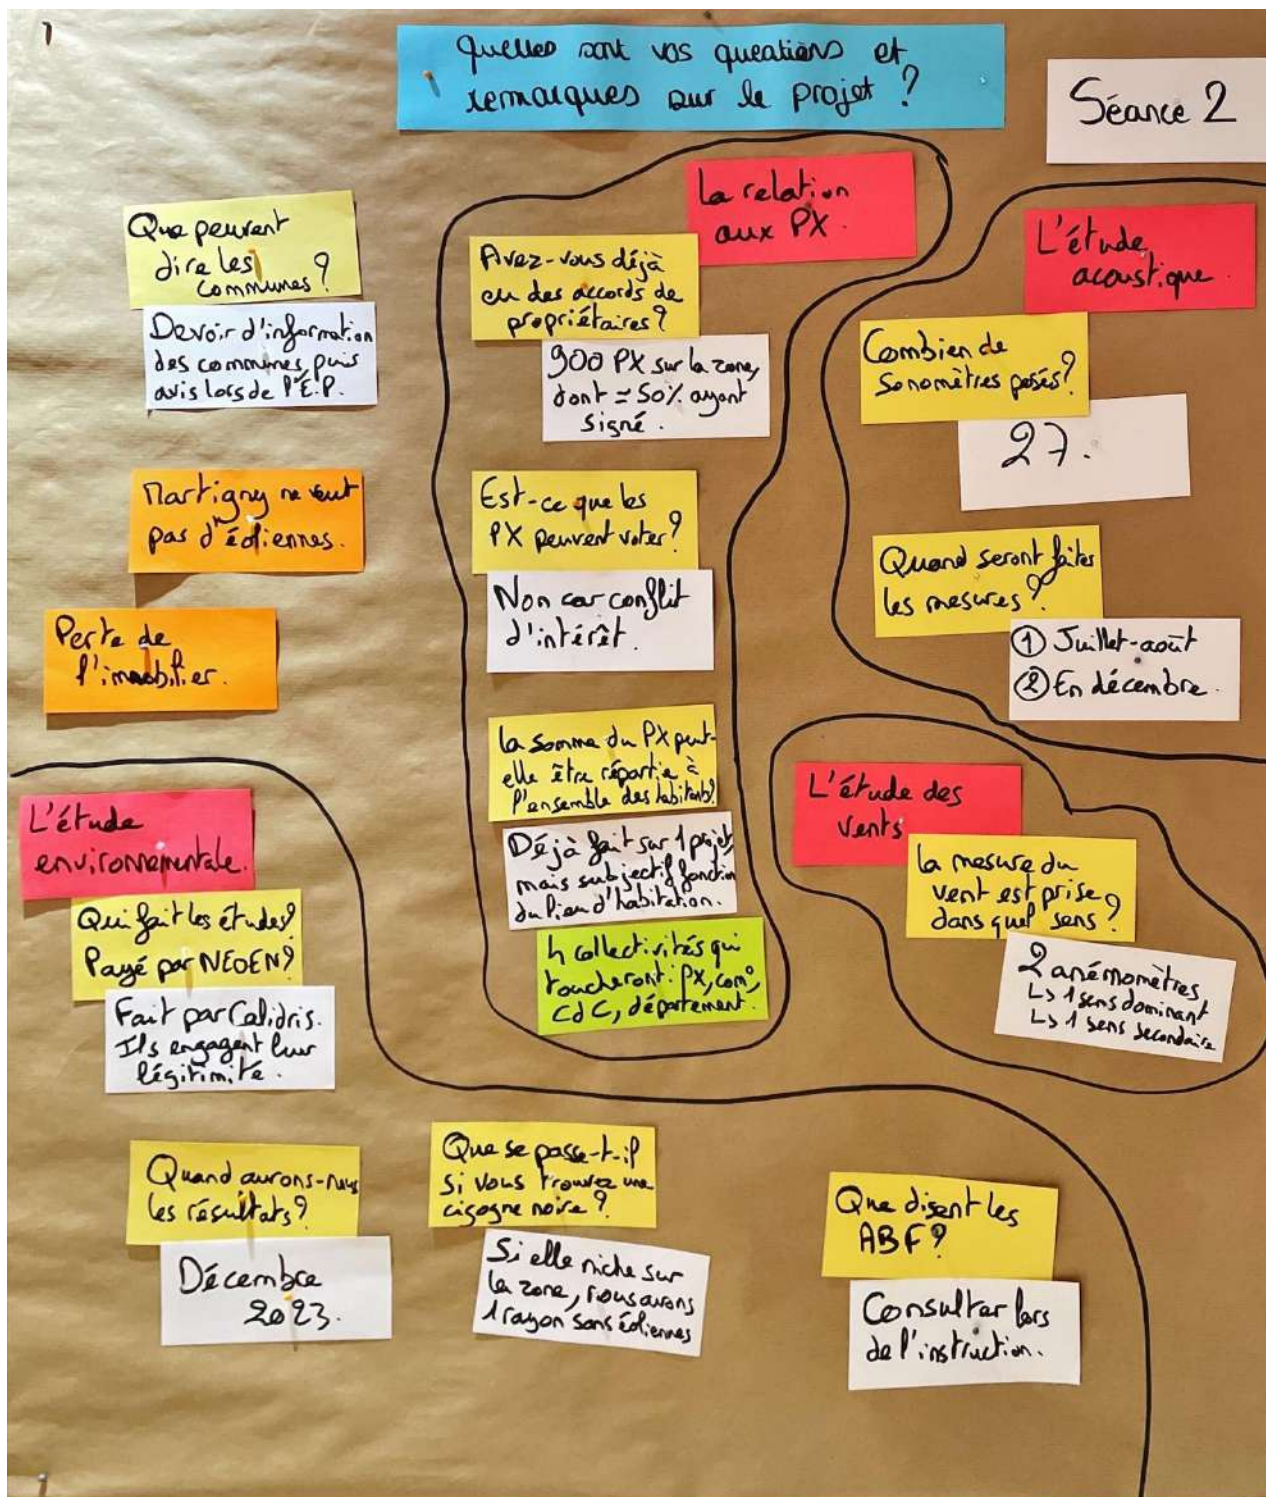 1
Quelles sont vos questions et
remarques sur le projet ?
Séance 2
Que peuvent
dire les
communes ?
Devoir d'information
des communes, puis
avis lors de l'E.P.
Martigny ne veut
pas d'éoliennes.
Perte de
l'immobilier.
La relation
aux PX.
Avez-vous déjà
eu des accords de
propriétaires ?
900 PX sur la zone,
dont = 50% ayant
signé.
Est-ce que les
PX peuvent voter ?
Non car conflit
d'intérêt.
La somme du PX peut-
elle être répartie à
l'ensemble des habitants ?
Déjà fait sur 1 projet,
mais subjectif fonction
du lieu d'habitation.
4 collectivités qui
toucheront : PX, com°,
CdC, département.
L'étude
acoustique.
Combien de
sonomètres posés ?
27.
Quand seront faites
les mesures ?
① Juillet-août
② En décembre.
L'étude des
vents
La mesure du
vent est prise
dans quel sens ?
2 anémomètres
↳ 1 sens dominant
↳ 1 sens secondaire
L'étude
environnementale.
Qui fait les études ?
Payé par NEOEN ?
Fait par Calidris.
Ils engagent leur
légitimité.
Quand aurons-nous
les résultats ?
Décembre
2023.
Que se passe-t-il
si vous trouvez une
cigogne noire ?
Si elle niche sur
la zone, nous avons
1 rayon sans éoliennes
Que disent les
ABF ?
Consulter lors
de l'instruction.